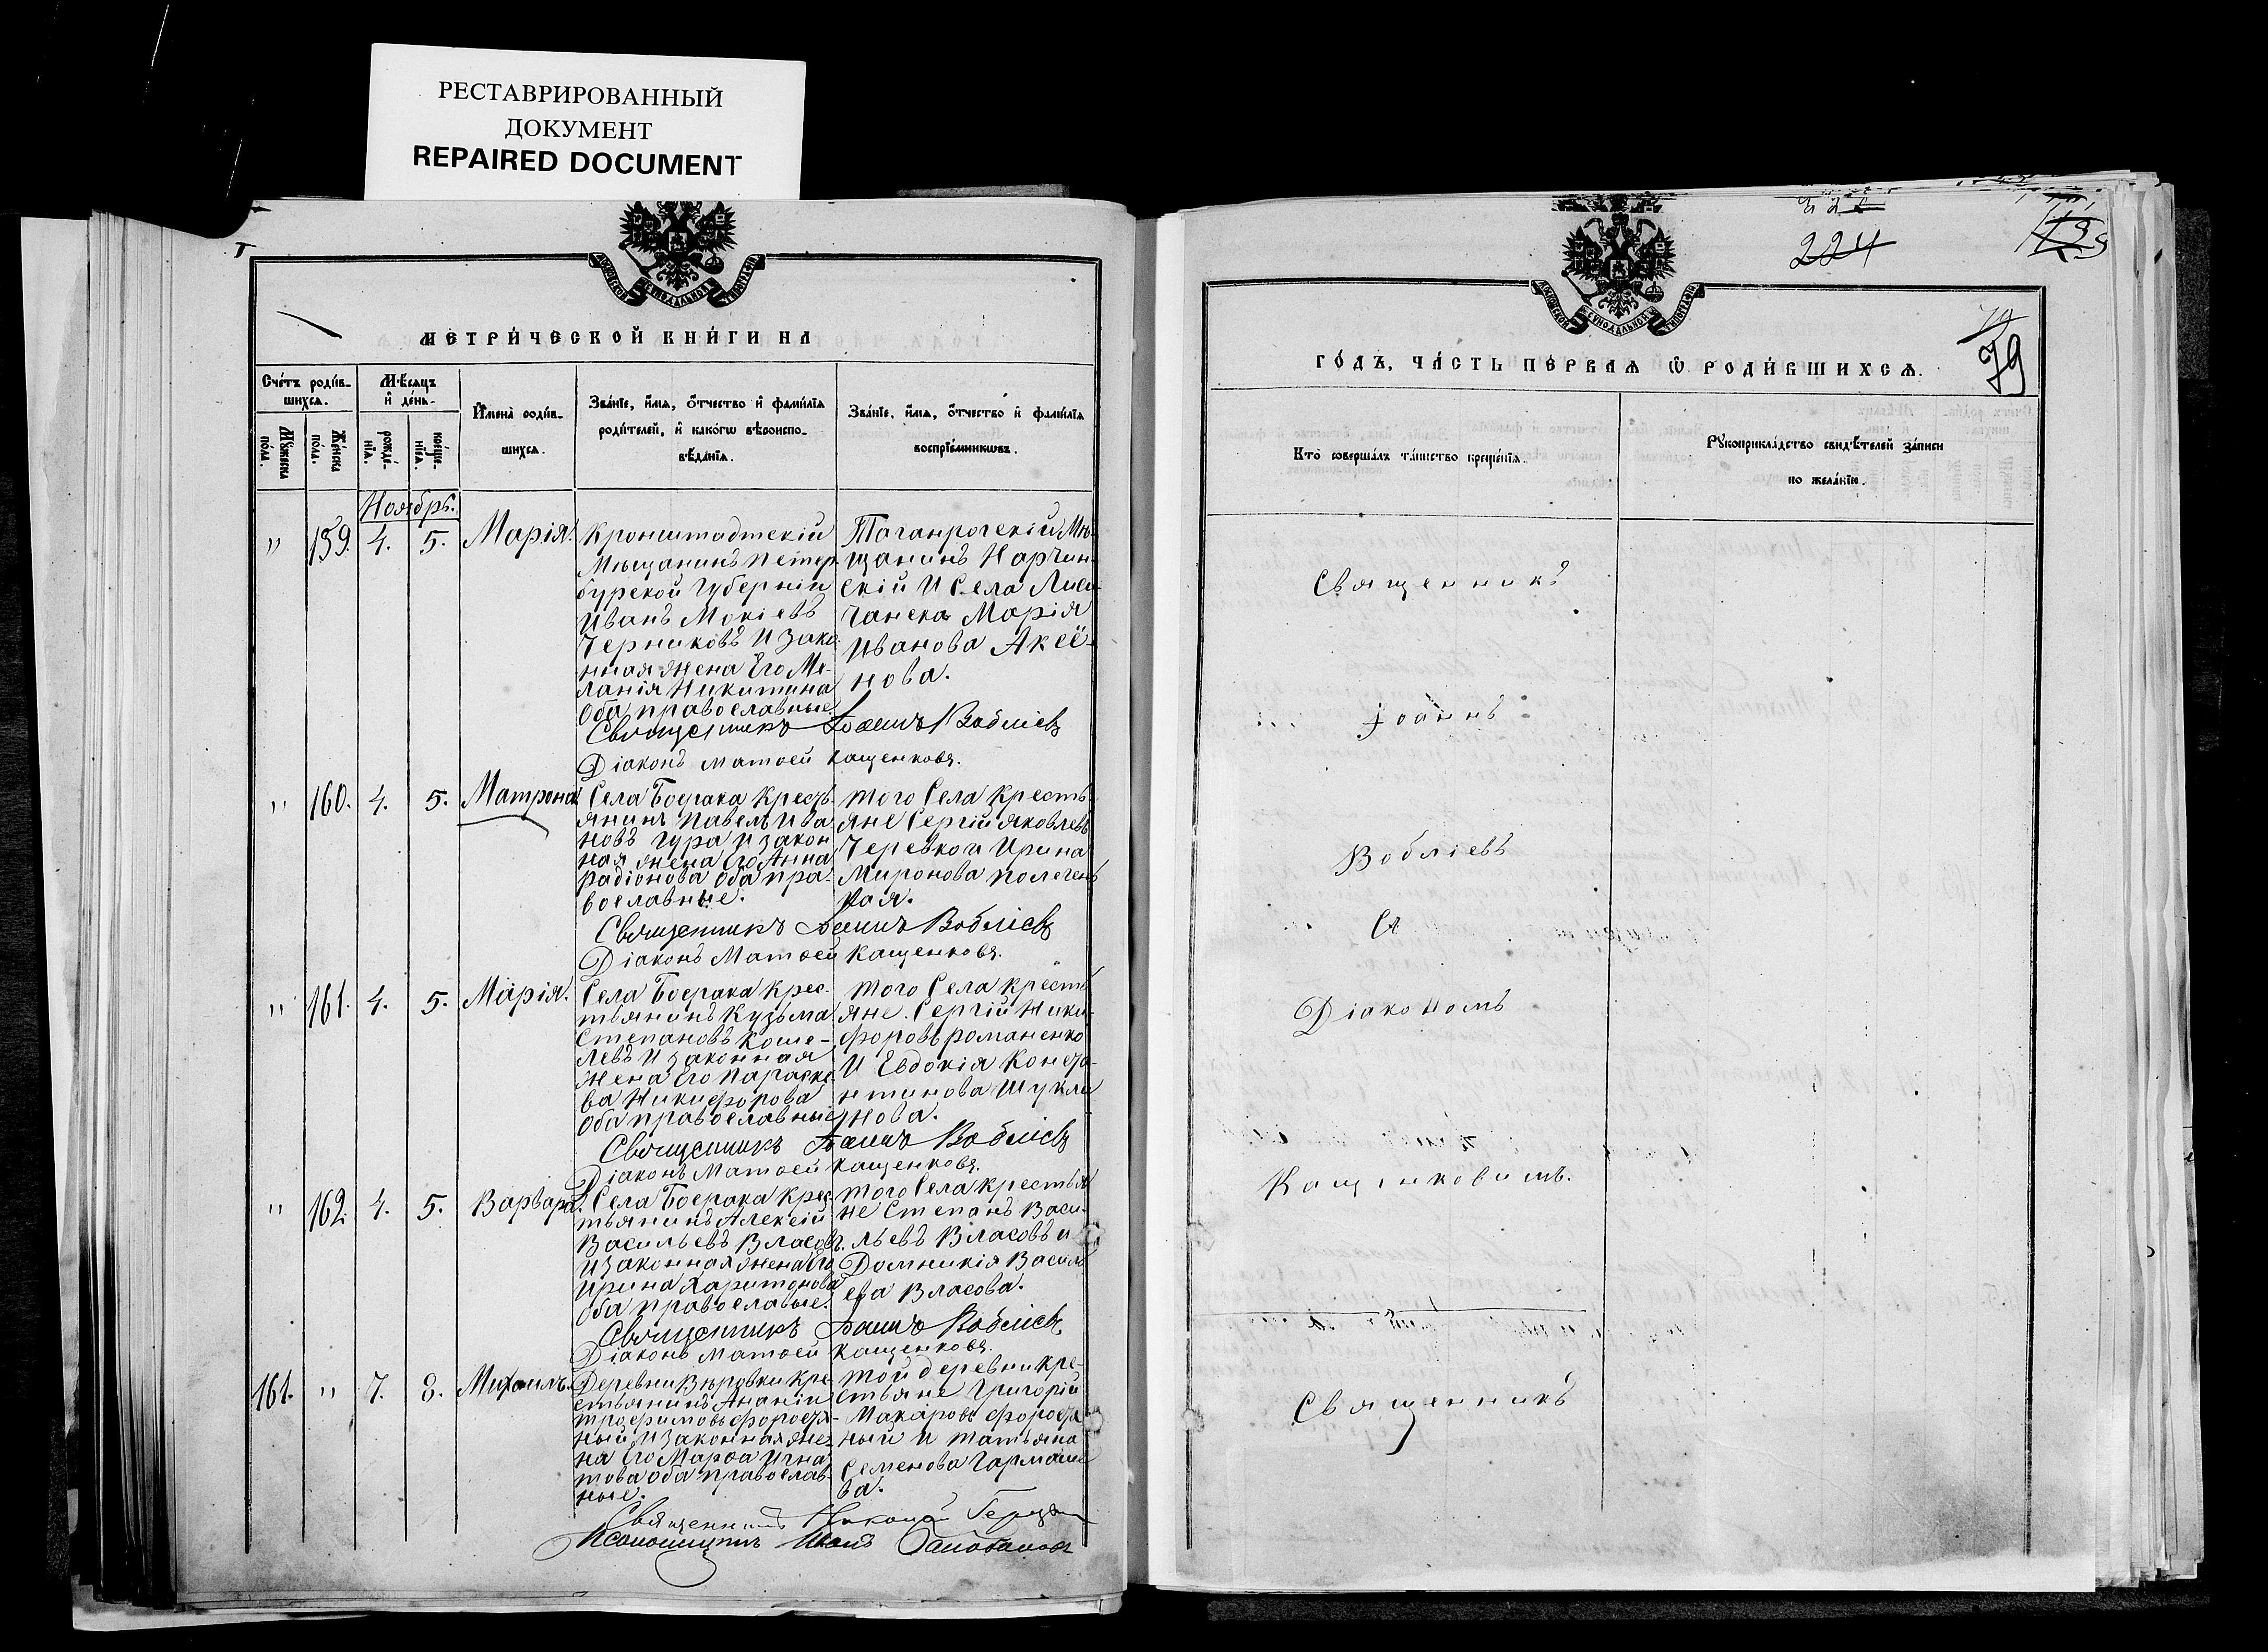 РЕСТАВРИРОВАННЫЙ
ДОКУМЕНТ
REPAIRED DOCUMENT
МЕТРИ́ЧЕСКОЙ КНИ́ГИ НА
Сче́тъ роди́в-
шихся.
Му́жеска
по́ла.
Же́нска
по́ла.
Мѣ́сяцъ
и де́нь.
рожде́-
нїя.
креще-
нїя.
Имена̀ роди́в-
шихся.
Зва́нїе, и́мя, о́тчество и фами́лїя
роди́телей, и како́гѡ вѣроиспо-
вѣ́данїя.
Зва́нїе, и́мя, о́тчество и фами́лїя
воспрїе́мникѡвъ.
Ноябрь.
" 159. 4. 5. Марія.
Кронштадтскій
Мѣщанинъ Петер
бурской Губерніи
Иванъ Мокіевъ
Черниковъ и зако-
нная жена Его Ме-
ланія Никитина
Оба православные.
Таганрогскій Мѣ-
щанинъ Нарчин-
скій и Села Лиси-
чанска Марія
Иванова Аксё-
нова.
Священникъ Іоаннъ Вобліевъ
Діаконъ Матѳей Кащенковъ.
" 160. 4. 5. Матрона
Села Боерака Кресть-
янинъ Павелъ Ива
новъ Гура и закон
ная жена Его Анна
Радіонова Оба пра-
вославные.
того Села Кресть-
яне Сергій Яковлевъ
Черевко и Ирина
Миронова
кая.
Священникъ Іоаннъ Вобліевъ
Діаконъ Матѳей Кащенковъ.
" 161. 4. 5. Марія.
Села Боерака Крес-
тьянинъ Кузьма
Степановъ Коше-
левъ и законная
жена Его Параске-
ва Никифорова
Оба православные
того Села Кресть
яне. Сергій Ники-
форовъ Романенко
и Евдокія Конста-
нтинова Шукли
нова.
Священникъ Іоаннъ Вобліевъ
Діаконъ Матѳей Кащенковъ.
" 162. 4. 5. Варвара.
Села Боерака Крес-
тьянинъ Алексій
Васильевъ Власовъ.
и законная жена Его
Ирина Харитонова
Оба православные.
того Села Крестья
не Степанъ Васи-
льевъ Власовъ и
Домникія Василь
ева Власова.
Священникъ Іоаннъ Вобліевъ
Діаконъ Матѳей Кащенковъ.
161. " 7. 8. Михаилъ.
Деревни Вѣровки Кре-
стьянинъ Ананій
Трофимовъ Форостя-
ный и законная же-
на Его Марѳа Игна
това Оба православ-
ные.
той деревни Кре-
стьяне Григорій
Макаровъ Форостя
ный и Татьяна
Семенова Гармаше
ва.
Священникъ Николай
Псаломщикъ Иванъ
224
79
ГО́ДЪ, ЧА́СТЬ ПЕ́РВАЯ Ѡ РОДИ́ВШИХСЯ.
Кто̀ соверша́лъ та́инство креще́нїя.
Рꙋкоприкла́дство свидѣ́телей за́писи
по жела́нїю.
Священникъ
Іоаннъ
Вобліевъ
Съ
Діакономъ
Кащенковымъ.
Священникъ